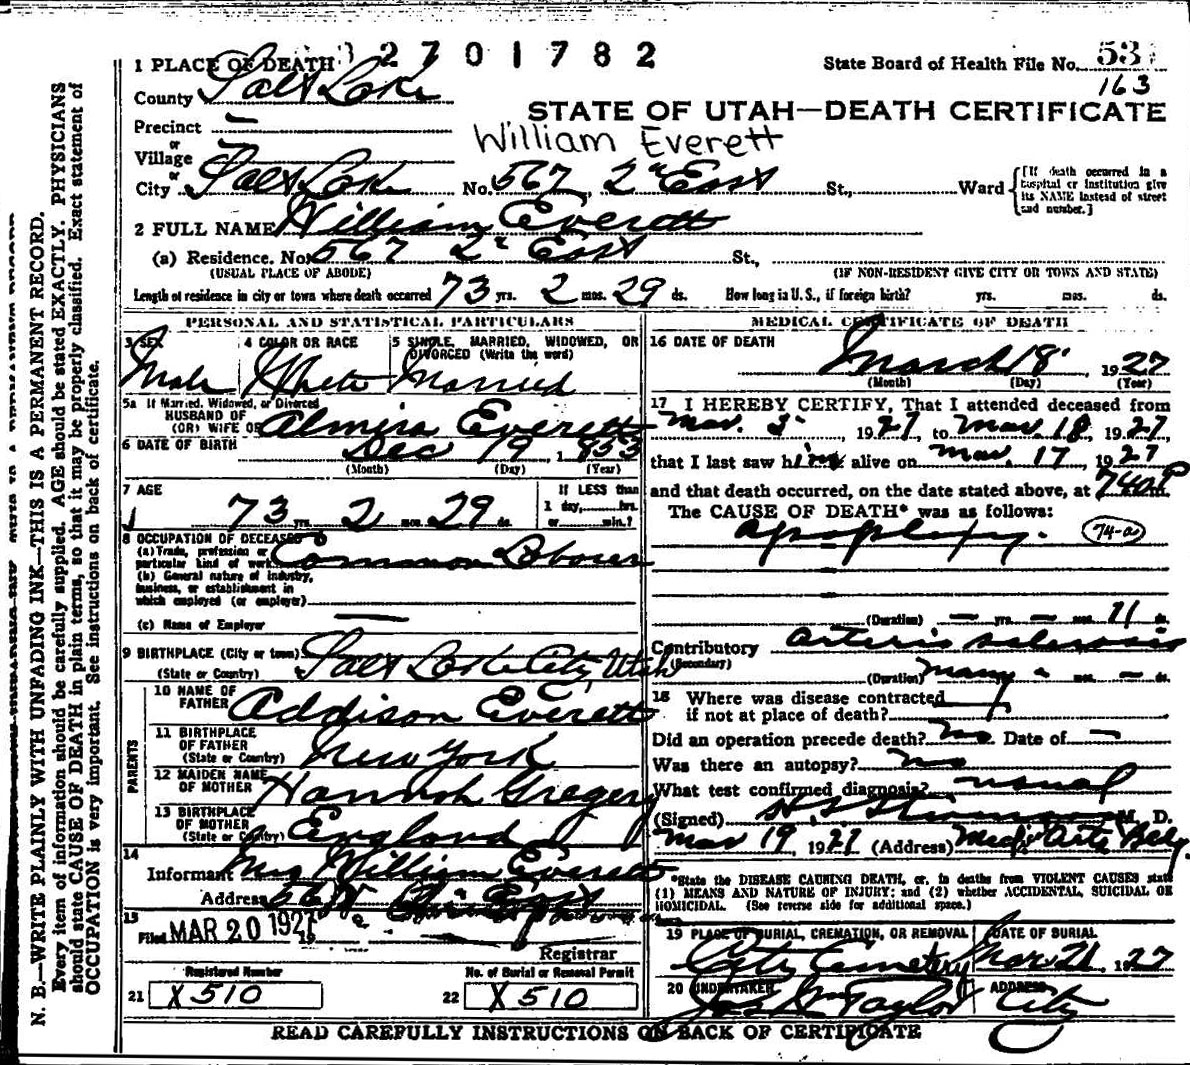 2701782
1 PLACE OF DEATH
State Board of Health File No. 53
163
County Salt Lake
STATE OF UTAH—DEATH CERTIFICATE
Precinct —
William Everett
or
Village
or
City Salt Lake No. 567, 2" East St., Ward
[If death occurred in a hospital or institution give its NAME instead of street and number.]
2 FULL NAME William Everett
(a) Residence. No. 567 2" East St.,
(USUAL PLACE OF ABODE) (IF NON-RESIDENT GIVE CITY OR TOWN AND STATE)
Length of residence in city or town where death occurred 73 yrs. 2 mos. 29 ds. How long in U.S., if foreign birth? yrs. mos. ds.
PERSONAL AND STATISTICAL PARTICULARS
3 SEX 4 COLOR OR RACE 5 SINGLE, MARRIED, WIDOWED, OR DIVORCED (Write the word)
Male White Married
5a If Married, Widowed, or Divorced
HUSBAND OF
(OR) WIFE OF Almira Everett
6 DATE OF BIRTH Dec 19, 1853
(Month) (Day) (Year)
7 AGE
73 yrs. 2 mos. 29 ds.
If LESS than
1 day, hrs.
or min.?
8 OCCUPATION OF DECEASED
(a) Trade, profession or
particular kind of work Common Laborer
(b) General nature of industry,
business, or establishment in
which employed (or employer)
(c) Name of Employer —
9 BIRTHPLACE (City or town) Salt Lake City, Utah
(State or Country)
PARENTS
10 NAME OF
FATHER Addison Everett
11 BIRTHPLACE
OF FATHER New York
(State or Country)
12 MAIDEN NAME
OF MOTHER Hannah Gregery
13 BIRTHPLACE
OF MOTHER England
(State or Country)
14
Informant Mrs William Everett
Address 567 East
15
Filed MAR 20 1927 19
Registrar
Registered Number No. of Burial or Removal Permit
21 X510 22 X510
MEDICAL CERTIFICATE OF DEATH
16 DATE OF DEATH
March 18, 1927
(Month) (Day) (Year)
17 I HEREBY CERTIFY, That I attended deceased from
Mar. 5, 1927, to Mar 18, 1927
that I last saw him alive on Mar. 17, 1927
and that death occurred, on the date stated above, at 740P
The CAUSE OF DEATH* was as follows:
apoplexy. 74-a
(Duration) — yrs. — mos. 11 ds.
Contributory arterio sclerosis
(Secondary)
(Duration) many " mos. — ds.
18 Where was disease contracted
if not at place of death?
Did an operation precede death? no Date of —
Was there an autopsy? no
What test confirmed diagnosis? usual
(Signed) M. D.
Mar 19, 1927 (Address) Med. Arts Bldg.
*State the DISEASE CAUSING DEATH, or, in deaths from VIOLENT CAUSES state
(1) MEANS AND NATURE OF INJURY; and (2) whether ACCIDENTAL, SUICIDAL OR
HOMICIDAL. (See reverse side for additional space.)
19 PLACE OF BURIAL, CREMATION, OR REMOVAL DATE OF BURIAL
City Cemetery Mar 21, 1927
20 UNDERTAKER ADDRESS
Jos Wm Taylor City
READ CAREFULLY INSTRUCTIONS ON BACK OF CERTIFICATE
N. B.—WRITE PLAINLY WITH UNFADING INK—THIS IS A PERMANENT RECORD.
Every item of information should be carefully supplied. AGE should be stated EXACTLY. PHYSICIANS
should state CAUSE OF DEATH in plain terms, so that it may be properly classified. Exact statement of
OCCUPATION is very important. See instructions on back of certificate.